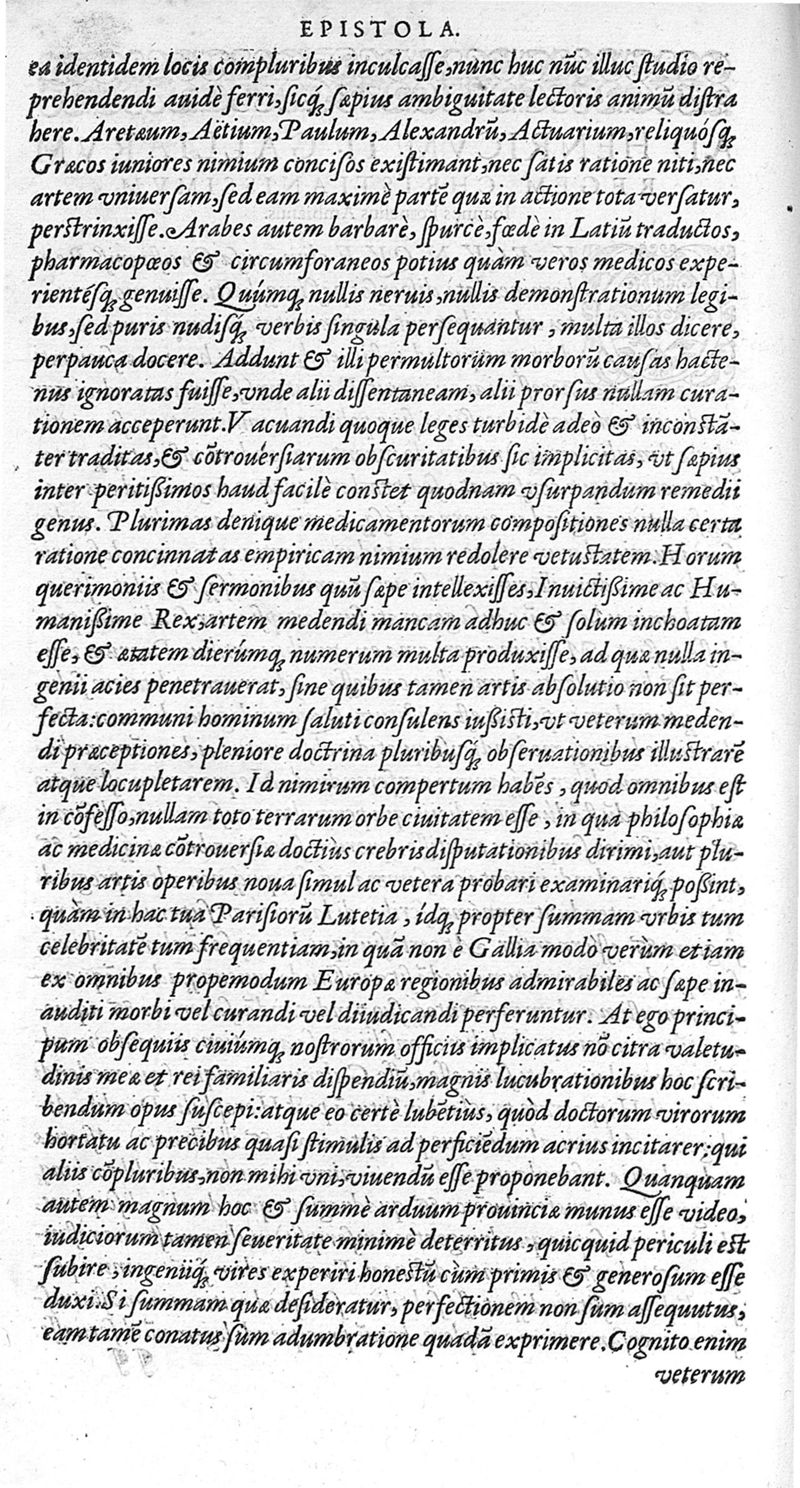 EPISTOLA.
ea identidem locis compluribus inculcasse, nunc huc nūc illuc studio re-
prehendendi auidè ferri, sicq́ꝫ sæpius ambiguitate lectoris animū distra
here. Aretæum, Aëtium, Paulum, Alexandrū, Actuarium, reliquósqꝫ
Græcos iuniores nimium concisos existimant, nec satis ratione niti, nec
artem vniuersam, sed eam maximè partē quæ in actione tota versatur,
perstrinxisse. Arabes autem barbarè, spurcè, fœdè in Latiū traductos,
pharmacopœos & circumforaneos potius quàm veros medicos expe-
rientésqꝫ genuisse. Quúmqꝫ nullis neruis, nullis demonstrationum legi-
bus, sed puris nudisq́ꝫ verbis singula persequantur, multa illos dicere,
perpauca docere. Addunt & illi permultorum morborū causas hacte-
nus ignoratas fuisse, vnde alii dissentaneam, alii prorsus nullam cura-
tionem acceperunt. Vacuandi quoque leges turbidè adeò & inconstā-
ter traditas, & cōtrouersiarum obscuritatibus sic implicitas, vt sæpius
inter peritißimos haud facilè constet quodnam vsurpandum remedii
genus. Plurimas denique medicamentorum compositiones nulla certa
ratione concinnatas empiricam nimium redolere vetustatem. Horum
querimoniis & sermonibus quū sæpe intellexisses, Inuictißime ac Hu-
manißime Rex, artem medendi mancam adhuc & solum inchoatam
esse, & ætatem dierúmqꝫ numerum multa produxisse, ad quæ nulla in-
genii acies penetrauerat, sine quibus tamen artis absolutio non sit per-
fecta: communi hominum saluti consulens iußisti, vt veterum meden-
di præceptiones, pleniore doctrina pluribusq́ꝫ obseruationibus illustrarē
atque locupletarem. Id nimirum compertum habēs, quod omnibus est
in cōfesso, nullam toto terrarum orbe ciuitatem esse, in qua philosophiæ
ac medicinæ cōtrouersiæ doctiùs crebris disputationibus dirimi, aut plu-
ribus artis operibus noua simul ac vetera probari examinariq́ꝫ poßint,
quàm in hac tua Parisiorū Lutetia, ídqꝫ propter summam vrbis tum
celebritatē tum frequentiam, in quā non è Gallia modo verùm etiam
ex omnibus propemodum Europæ regionibus admirabiles ac sæpe in-
auditi morbi vel curandi vel diiudicandi perferuntur. At ego princi-
pum obsequiis ciuiúmqꝫ nostrorum officiis implicatus nō citra valetu-
dinis meæ et rei familiaris dispendiū, magnis lucubrationibus hoc scri-
bendum opus suscepi: atque eo certè lubētiùs, quòd doctorum virorum
hortatu ac precibus quasi stimulis ad perficiēdum acrius incitarer: qui
aliis cōpluribus, non mihi vni, viuendū esse proponebant. Quanquam
autem magnum hoc & summè arduum prouinciæ munus esse video,
iudiciorum tamen seueritate minimè deterritus, quicquid periculi est
subire, ingeniiq́ꝫ vires experiri honestū cùm primis & generosum esse
duxi. Si summam quæ desideratur, perfectionem non sum assequutus,
eam tamē conatus sum adumbratione quadā exprimere. Cognito enim
veterum